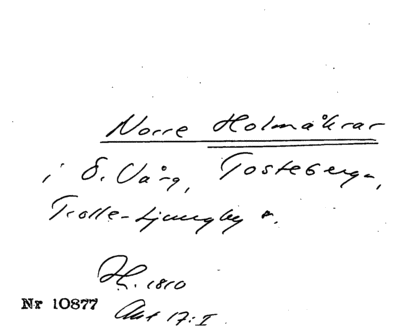 Norre Holmåkrar
i S. Vång, Tosteberga,
Trolle-Ljungby s.
H. 1810
Nr 10877 Akt 17:I